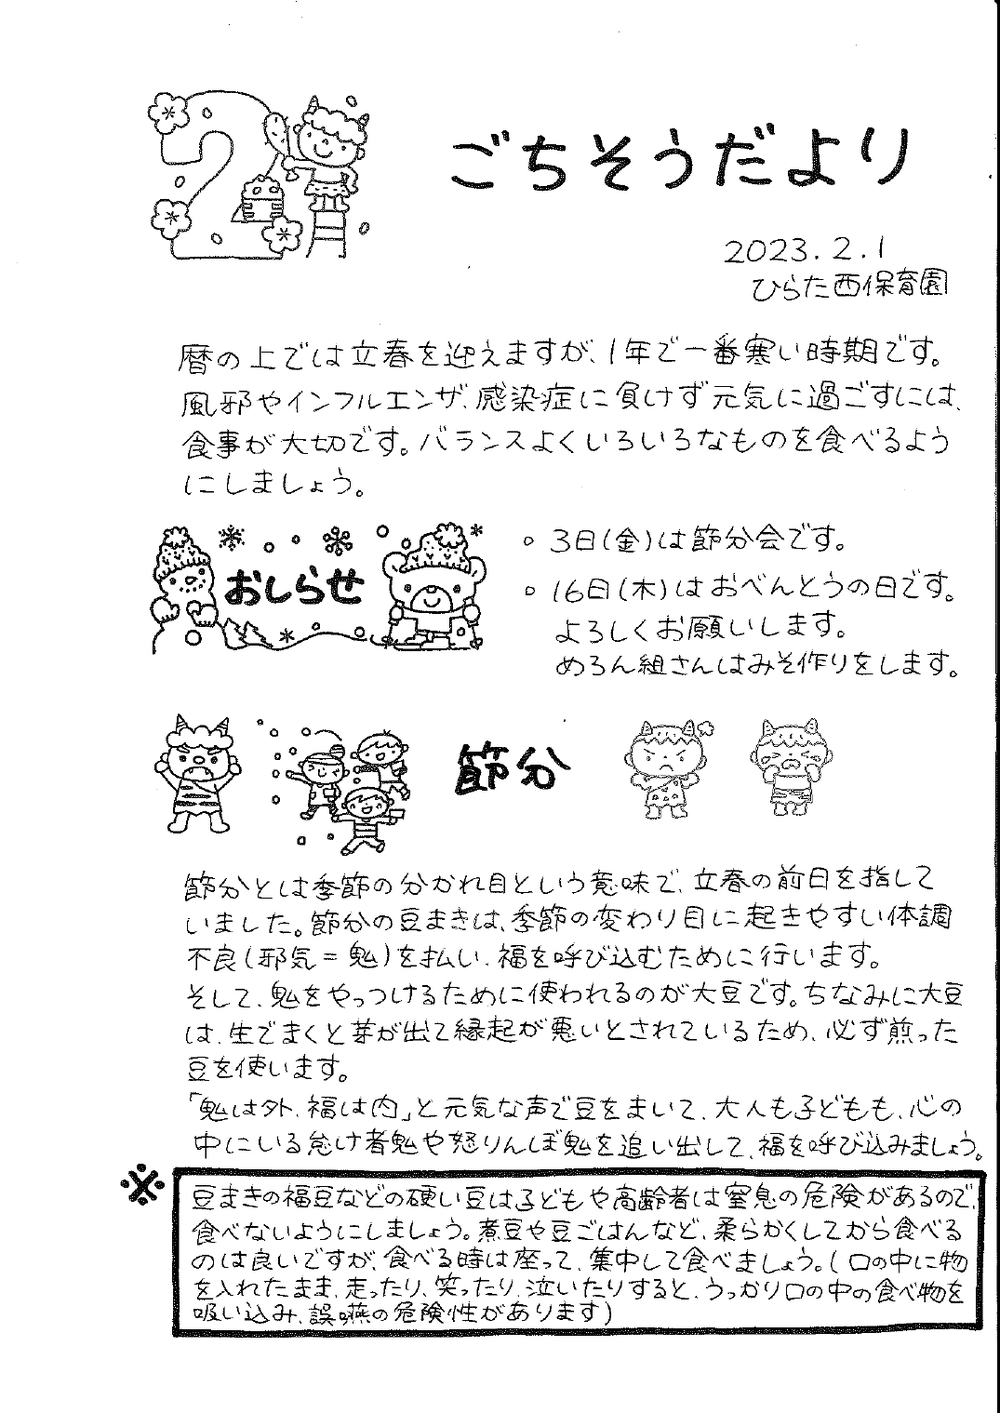 2
ごちそうだより
2023.2.1
ひらた西保育園
暦の上では立春を迎えますが、1年で一番寒い時期です。
風邪やインフルエンザ、感染症に負けず元気に過ごすには、
食事が大切です。バランスよくいろいろなものを食べるよう
にしましょう。
おしらせ
○ 3日(金)は節分会です。
○ 16日(木)はおべんとうの日です。
よろしくお願いします。
めろん組さんはみそ作りをします。
節分
節分とは季節の分かれ目という意味で、立春の前日を指して
いました。節分の豆まきは、季節の変わり目に起きやすい体調
不良(邪気=鬼)を払い、福を呼び込むために行います。
そして、鬼をやっつけるために使われるのが大豆です。ちなみに大豆
は、生でまくと芽が出て縁起が悪いとされているため、必ず煎った
豆を使います。
「鬼は外、福は内」と元気な声で豆をまいて、大人も子どもも、心の
中にいる怠け者鬼や怒りんぼ鬼を追い出して、福を呼び込みましょう。
※
豆まきの福豆などの硬い豆は子どもや高齢者は窒息の危険があるので、
食べないようにしましょう。煮豆や豆ごはんなど、柔らかくしてから食べる
のは良いですが、食べる時は座って、集中して食べましょう。(口の中に物
を入れたまま、走ったり、笑ったり、泣いたりすると、うっかり口の中の食べ物を
吸い込み、誤嚥の危険性があります)